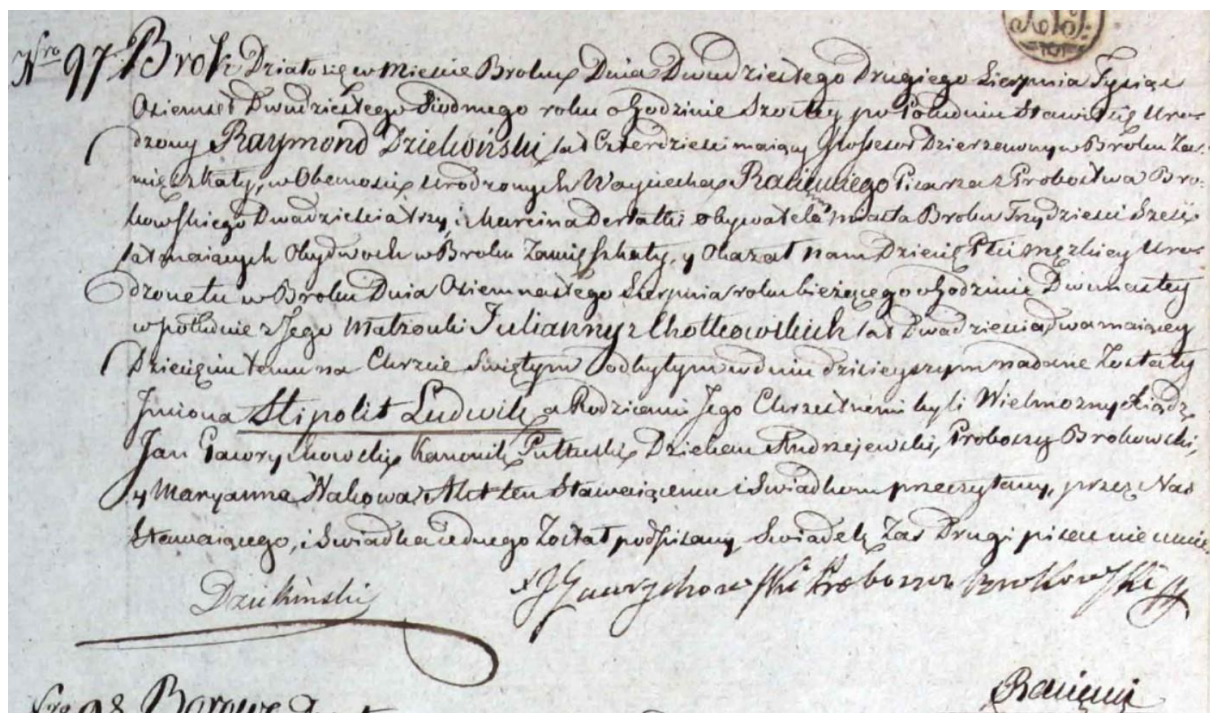 Nro 97. Brok Działo się w Mieście Broku Dnia Dwudziestego Drugiego Sierpnia Tysiąc
Osiemset Dwudziestego Siodmego roku o Godzinie Szostey po Południu Stawił się Uro-
dzony Raymond Dziekoński lat Czterdzieści maiący Dzierzawny w Broku Za-
mięszkały, w Obecności Urodzonych Woyciecha Pisarza z Probostwa Bro-
kowskiego Dwadzieścia trzy, i Marcina Obywatela miasta Broku Trzydzieści Sześć
lat maiących Obydwoch w Broku Zamięszkały, y Okazał nam Dziecię Płci męzkiey Uro-
dzone tu w Broku Dnia Osiemnastego Sierpnia roku bieżącego o Godzinie Dwunastey
w południe z Jego Małzonki Julianny z lat Dwadzieścia dwa maiącey
Dziecięciu temu na Chrzcie Swiętym odbytym w dniu dzisieyszym nadane Zostały
Jmiona Hipolit Ludwik, a Rodzicami Jego Chrzestnemi byli Wielmozny Xiądz
Jan Gawrychowski Kanonik Pułtuski Dziekan Andrzejewski, Proboszcz Brokowski,
y Maryanna Akt ten Stawaiącemu i Swiadkom przeczytany, przez Nas
Stawaiącego, i Swiadka iednego Został podpisany, Swiadek Zas Drugi pisać nie umie.
Dziekiński
X J Gawrychowski Proboszcz Brokowski
Nro 98